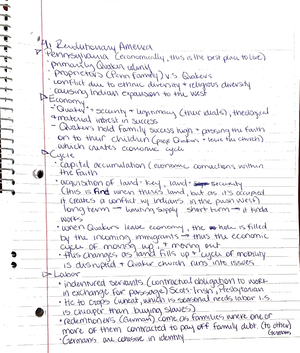 Revolutionary America
Pennsylvania (economically, this is the best place to live)
• primarily Quaker colony
• proprietor's (Penn Family) v.s Quakers
• conflict due to ethnic diversity + religious diversity
causing Indian expansion to the west
Economy
• "Quaker" + security + legitimacy (true ideals), theological
+ material interest in success
• Quakers hold family success high + passing the faith
on to their children (poor Quakers + leave the church)
which creates economic cycle
Cycle
• capital accumulation (economic connections within
the faith
• acquisition of land - key, land - security
(this is fine when there's land, but as it's occupied
it creates a conflict w/ Indians in the push west)
long term → limiting supply short term → it kinda
works
• when Quakers leave economy, the hole is filled
by the incoming immigrants → thus the economic
cycle of moving up, + moving out
• this changes as land fills up + cycle of mobility
is disrupted + Quaker church runs into issues
Labor
• indentured servants (contractual obligation to work
in exchange for passage) Scots-Irish, Presbyterian
• tie to crops (wheat, which is seasonal needs labor i.s.
is cheaper than buying slaves)
• redemptioners (German) come as families where one or
more of them contracted to pay off family debt. (to other)
• Germans are cohesive in identity Germans